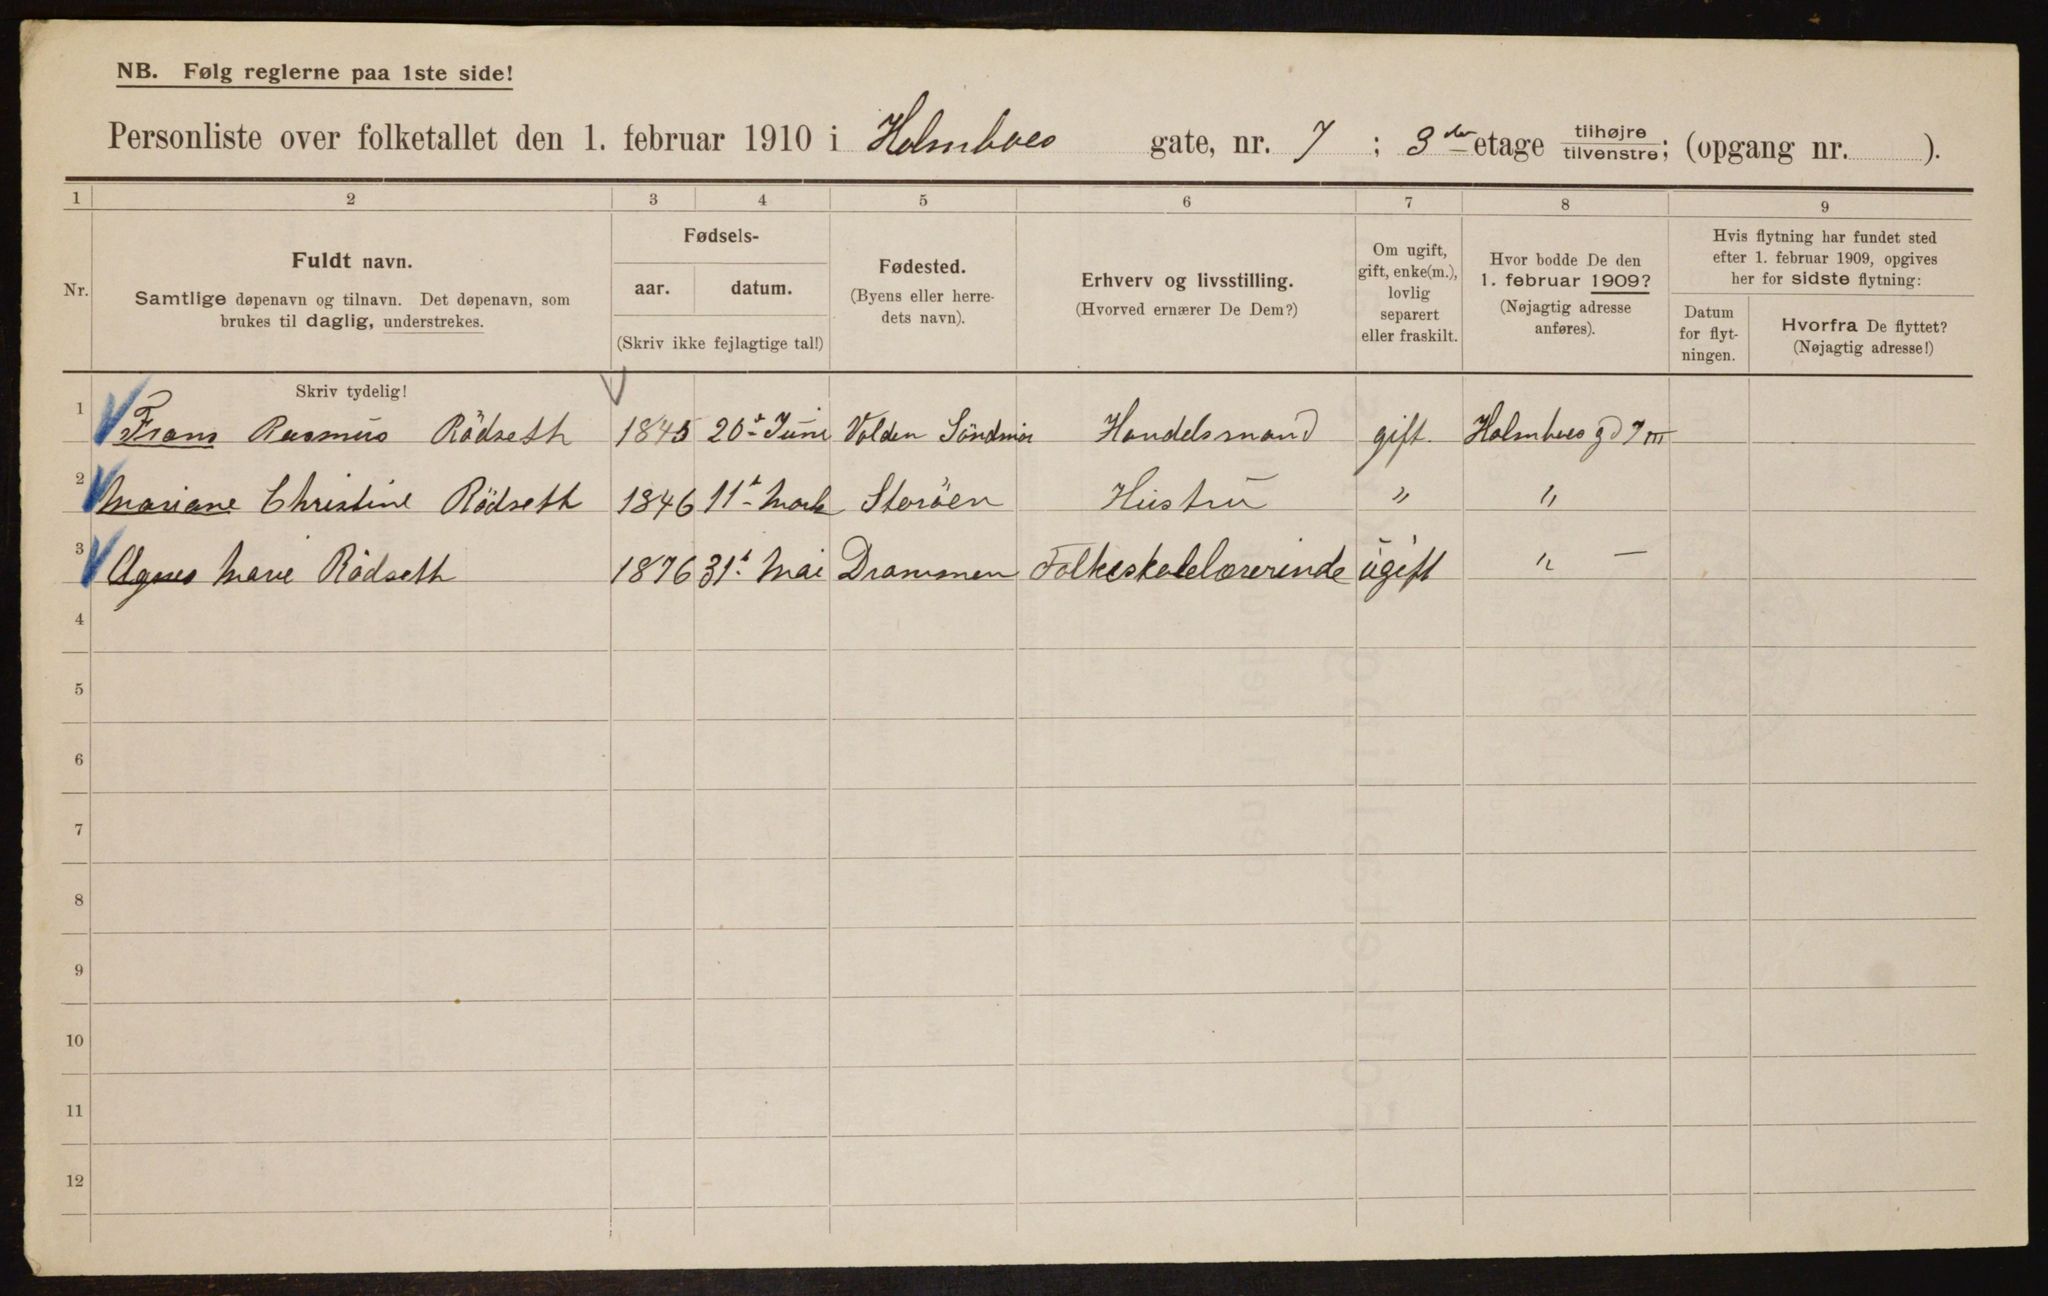 NB. Følg reglerne paa 1ste side!
Personliste over folketallet den 1. februar 1910 i Holmboes gate, nr. 7 ; 3 der etage tilhøjre/tilvenstre; (opgang nr. ).
1 2 3 4 5 6 7 8 9
Nr.
Fuldt navn.
Samtlige døpenavn og tilnavn. Det døpenavn, som
brukes til daglig, understrekes.
Fødsels-
aar. datum.
(Skriv ikke fejlagtige tal!)
Fødested.
(Byens eller herre-
dets navn).
Erhverv og livsstilling.
(Hvorved ernærer De Dem?)
Om ugift,
gift, enke(m.),
lovlig
separert
eller fraskilt.
Hvor bodde De den
1. februar 1909?
(Nøjagtig adresse
anføres).
Hvis flytning har fundet sted
efter 1. februar 1909, opgives
her for sidste flytning:
Datum
for flyt-
ningen.
Hvorfra De flyttet?
(Nøjagtig adresse!)
Skriv tydelig!
1 Frans Rasmus Rödseth 1845 20de Juni Volden Söndmör Handelsmand gift. Holmboes gd 7 III
2 Mariane Christine Rödseth 1846 11te Storöen Hustru " "
3 Agnes Marie Rödseth 1876 31te Mai Drammen Folkeskolelærerinde ugift " —
4
5
6
7
8
9
10
11
12